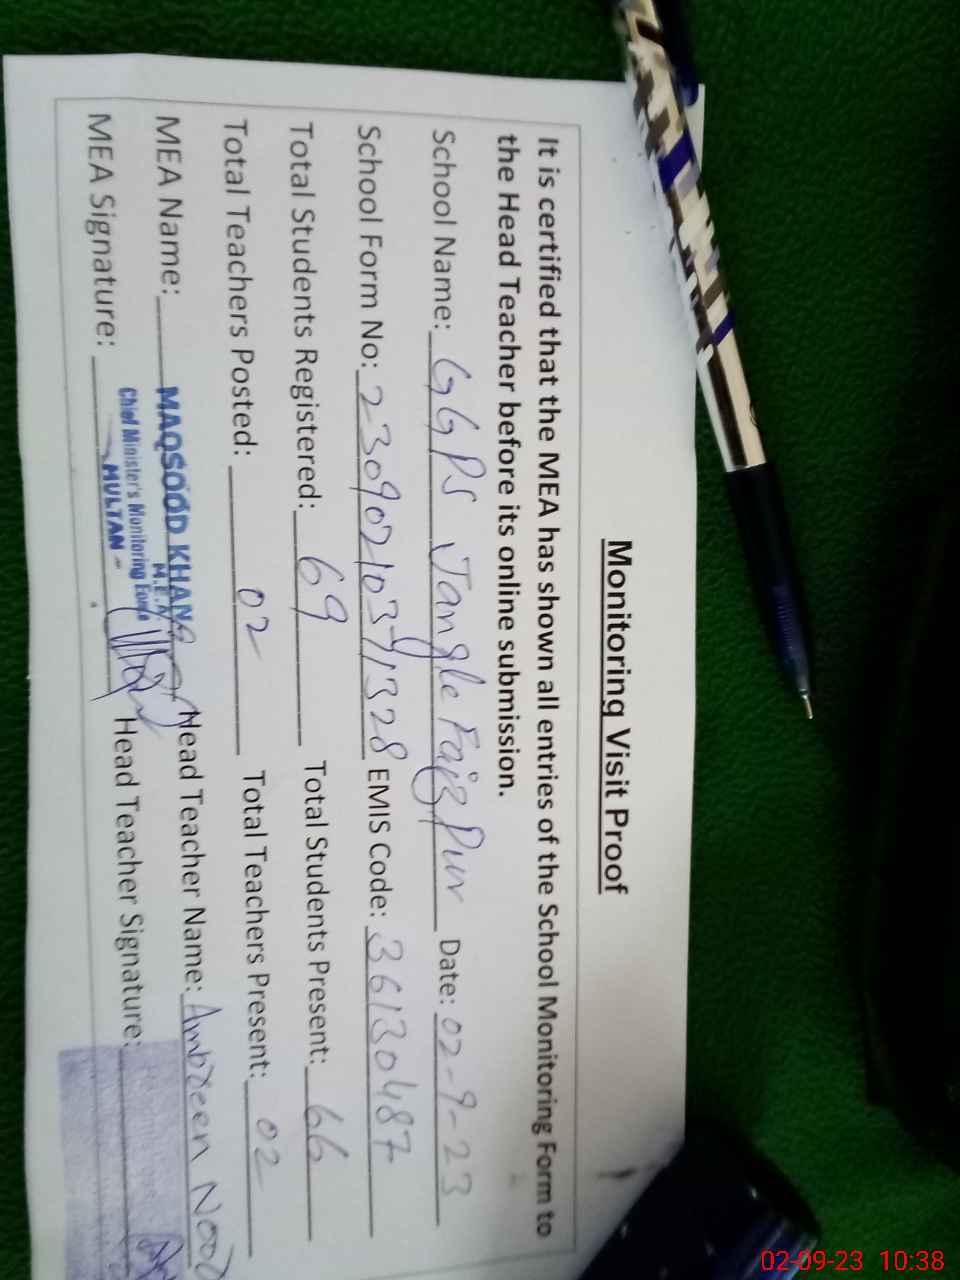 Monitoring Visit Proof
It is certified that the MEA has shown all entries of the School Monitoring Form to
the Head Teacher before its online submission.
School Name: GGPS Jangle Faiz Pur Date: 02-9-23
School Form No: 230902103791328 EMIS Code: 36130487
Total Students Registered: 69 Total Students Present: 66
Total Teachers Posted: 02 Total Teachers Present: 02
MEA Name: MAQSOOD KHAN Head Teacher Name: Ambreen Noor
M.E.A
Chief Minister's Monitoring Force
MULTAN
MEA Signature: Head Teacher Signature:
02-09-23 10:38